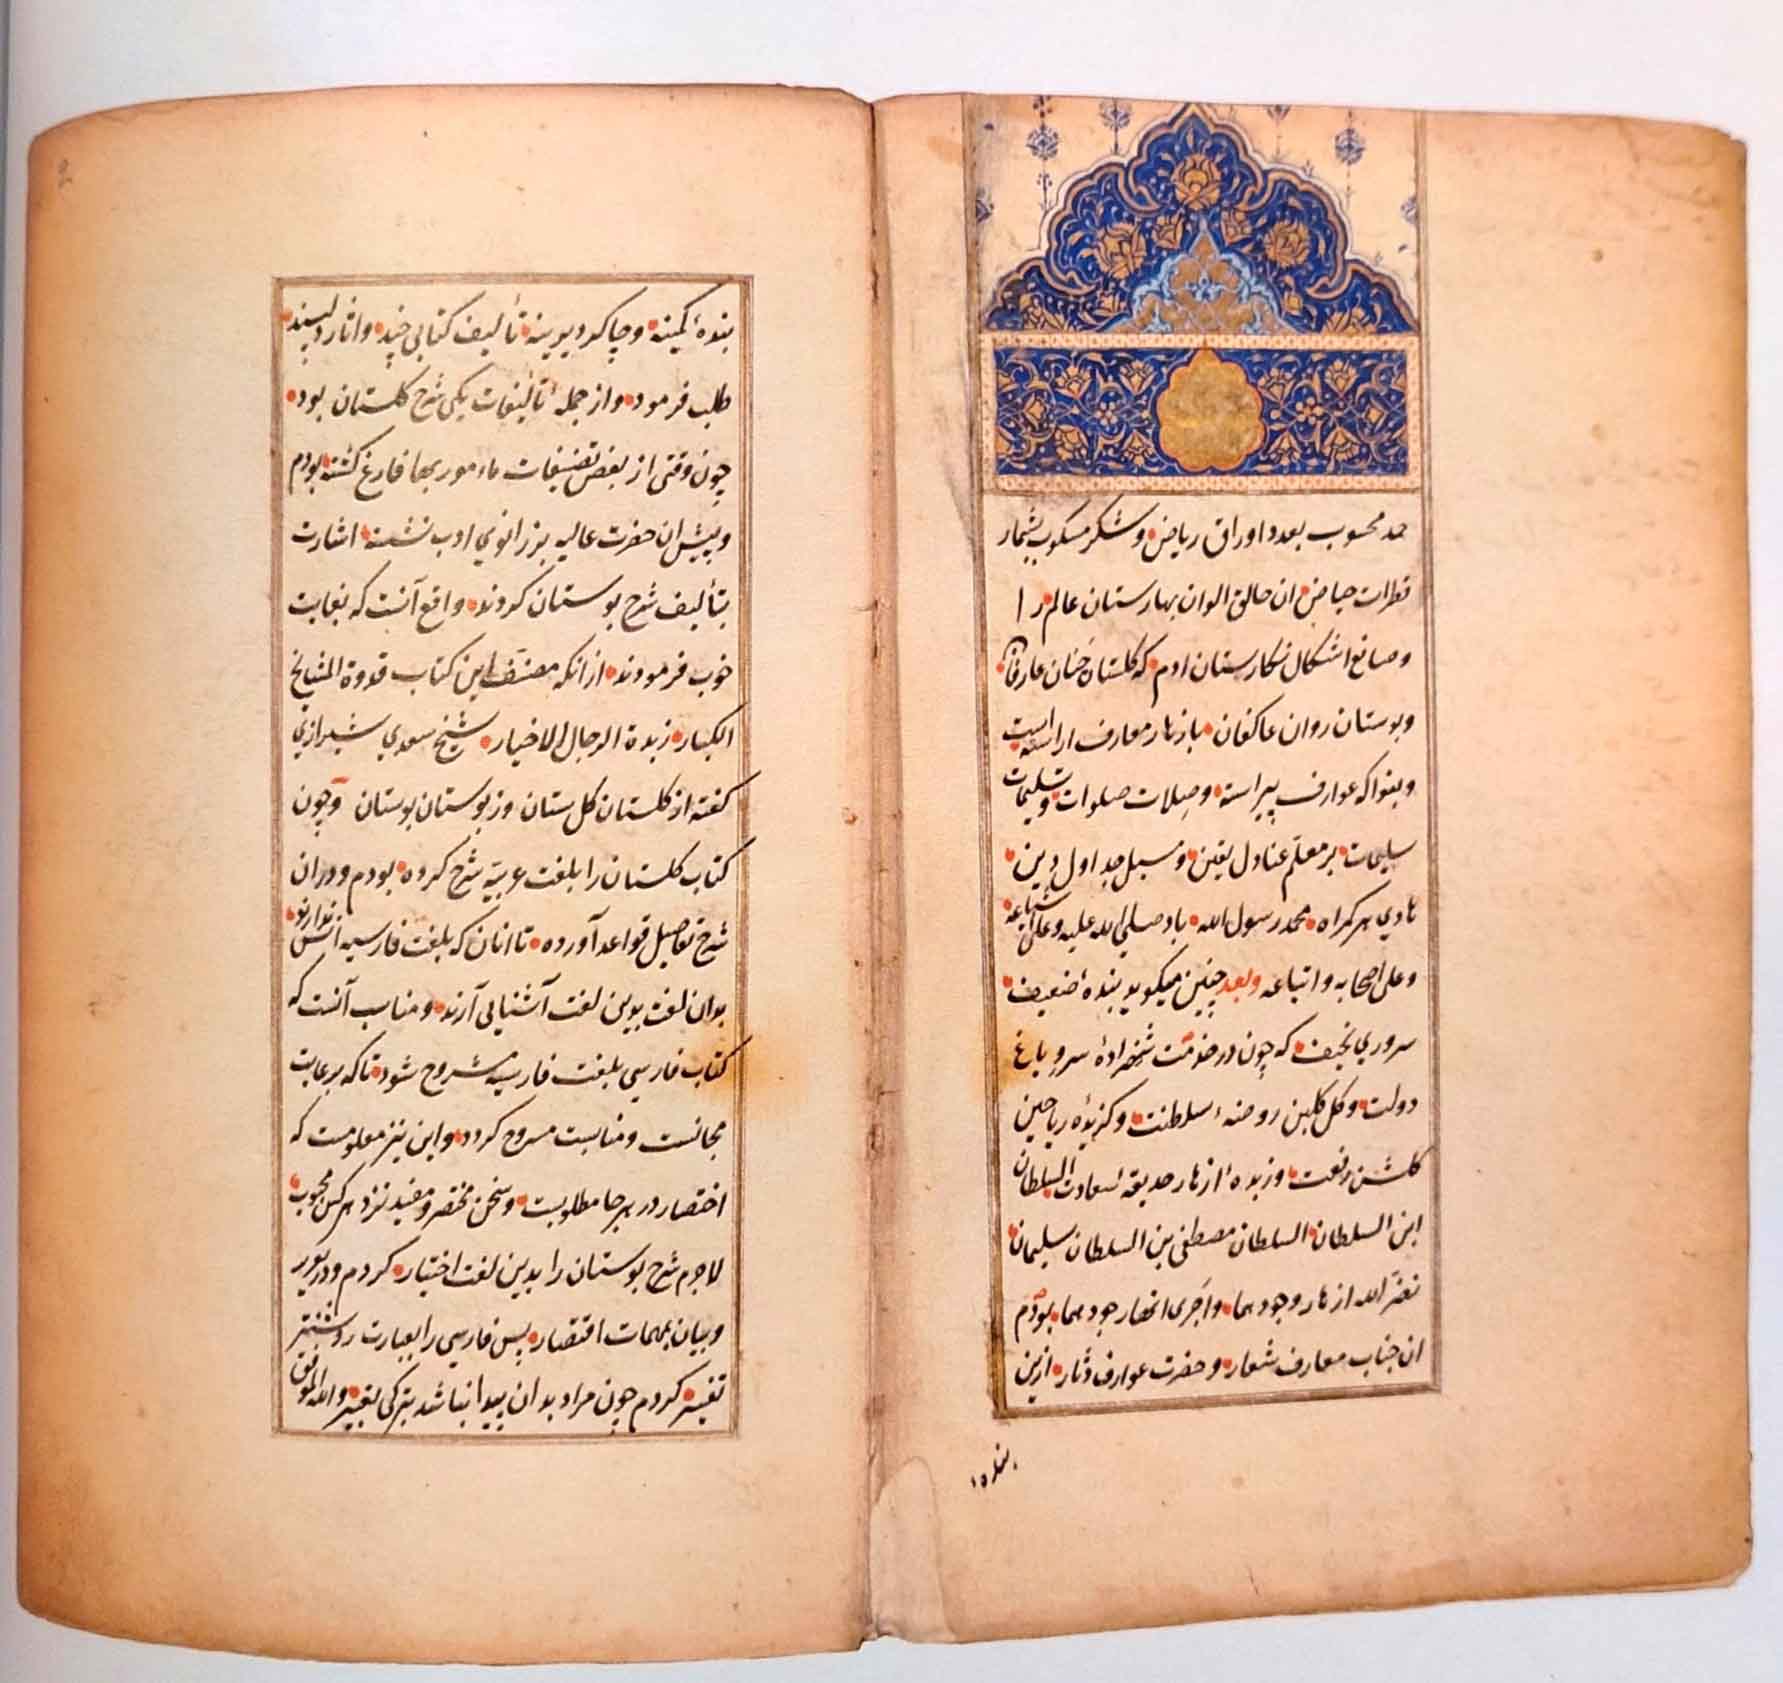 حمد محسوب بعدد اوراق ریاض و شکر مسکوب بشمار
قطرات حیاض ان خالق الوان بهارستان عالم را
و صانع اشکال نکارستان ادم که کلستان جنان عارفان
و بوستان روان عاکفان بازهار معارف اراسته است
و بفواکه عوارف پیراسته و صلات صلوات و تسلیمات
سلیمات بر معلّم عنادل یقین و مسبل جداول دین
هادی هر کمراه محمد رسول الله باد صلی الله علیه و علی اشیاعه
و علی اصحابه و اتباعه و بعد چنین میکوید بندهٔ ضعیف
سروری نحیف که چون در خدمت شهزادهٔ سرو باغ
دولت و کل کلبن روضهٔ سلطنت و کزیدهٔ ریاحین
کلشن رفعت و زبدهٔ ازهار حدیقهٔ سعادت السلطان
ابن السلطان السلطان مصطفی بن السلطان سلیمان
نضّر الله ازهار وجودهما و اجری انهار جودهما بودم
ان جناب معارف شعار و حضرت عوارف دثار ازین
بنده
بندهٔ کمینه و چاکر دیرینه تألیف کتابی چند و اثار دلپسند
طلب فرمود و از جملهٔ تألیفات یکی شرح کلستان بود
چون وقتی از بعض تصنیفات مامور بها فارغ کشته بودم
و پیش ان حضرت عالیه بر زانوی ادب نشسته اشارت
بتألیف شرح بوستان کردند واقع آنست که بغایت
خوب فرمودند از انکه مصنّف این کتاب قدوة المشایخ
الکبار زبدة الرجال الاخیار شیخ سعدی شیرازی
کفته از کلستان کل ستان وز بوستان بوستان و چون
کتاب کلستان را بلغت عربیّه شرح کرده بودم و دران
شرح تفاصیل قواعد آورده تا انان که بلغت فارسیه انس ندارند
بدان لغت بدین لغت آشنایی آرند و مناسب آنست که
کتاب فارسی بلغت فارسیه مشروح شود تا که برعایت
مجانست و مناسبت مسروح کردد و این نیز معلومست که
اختصار در هر جا مطلوبست و سخن مختصر و مفید نزد هر کس محبوب
لاجرم شرح بوستان را بدین لغت اختیار کردم و در
و بیان بمهمات اقتصار پس فارسی را بعبارت روشنتر
تفسیر کردم چون مراد بدان پیدا نباشد بترکی تعبیر و الله الموفق